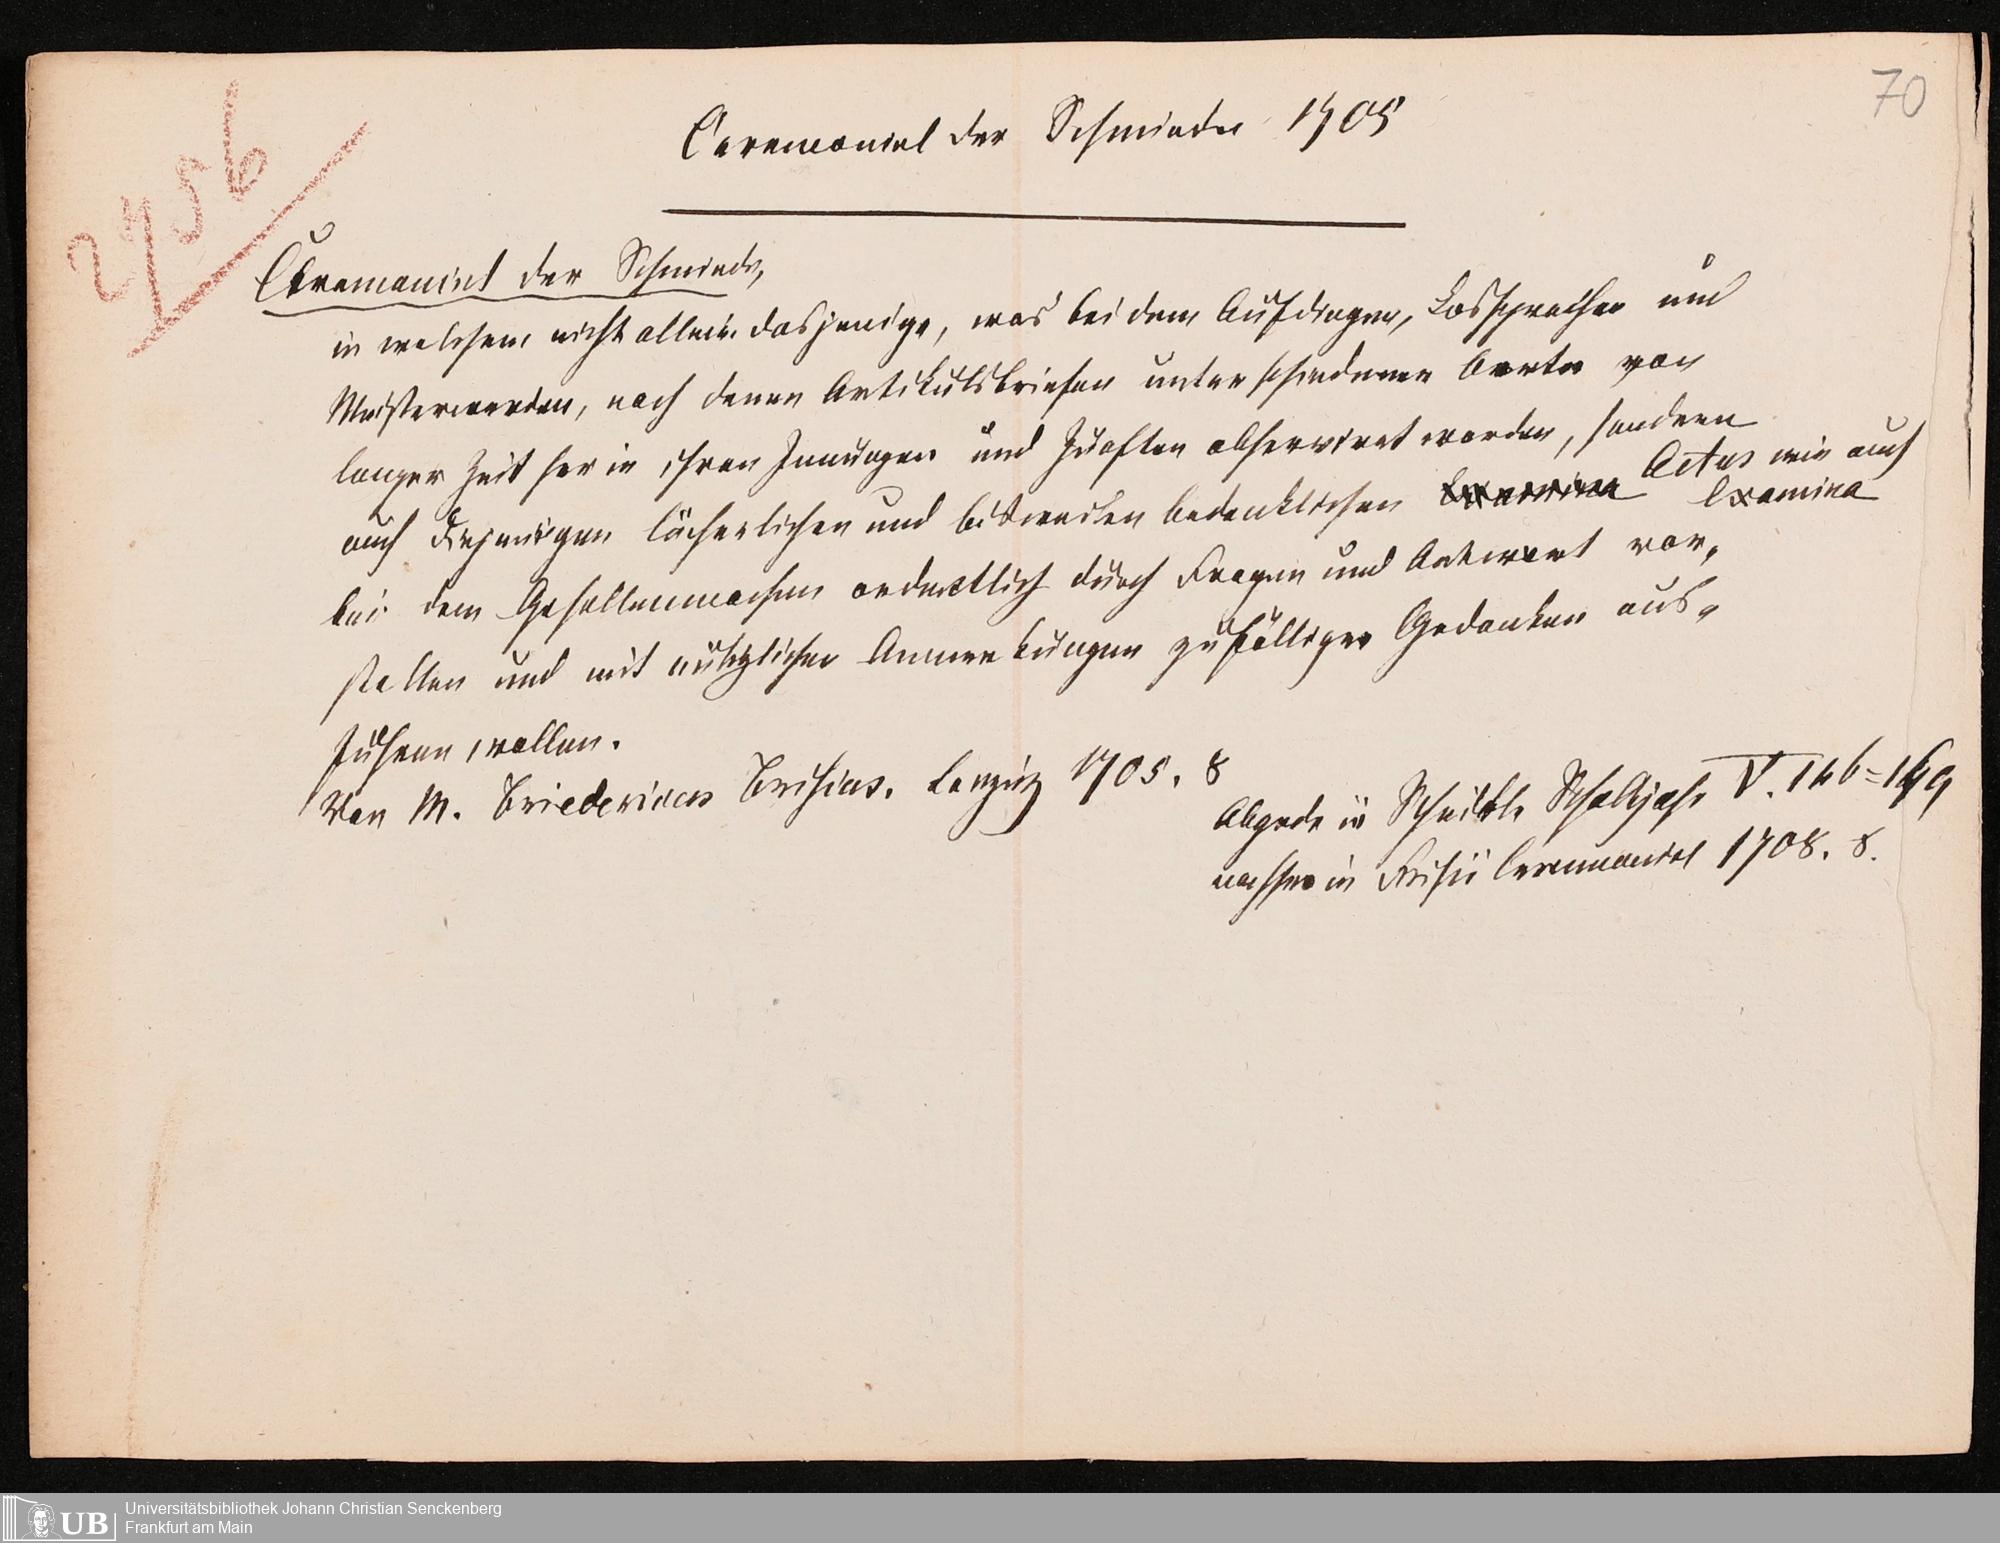 70
2756
Ceremoniel der Schmiede 1705
Ceremoniel der Schmiede,
in welchem nicht allein dasjenige, was bei dem Aufdingen, Lossprechen und
Meisterwerden, nach denen Artikulsbriefen unterschiedener Oerter von
langer Zeit her in ihren Innungen und Zünften observiret worden, sondern
auch diejenigen lächerlichen und bisweilen bedenklichen Examina Actus wie auch Examina
bei dem Gesellenmachen ordentlich durch Fragen und Antwort vor,
stellen und mit nützlichen Anmerkungen zufälliger Gedanken aus,
führen wollen.
Von M. Friedericus Frisius. Leipzig 1705. 8
Abgedr in Scheible Schaltjahr V. 146=169
nachher in Frisii Ceremoniel 1708. 8.
Universitätsbibliothek Johann Christian Senckenberg
UB Frankfurt am Main